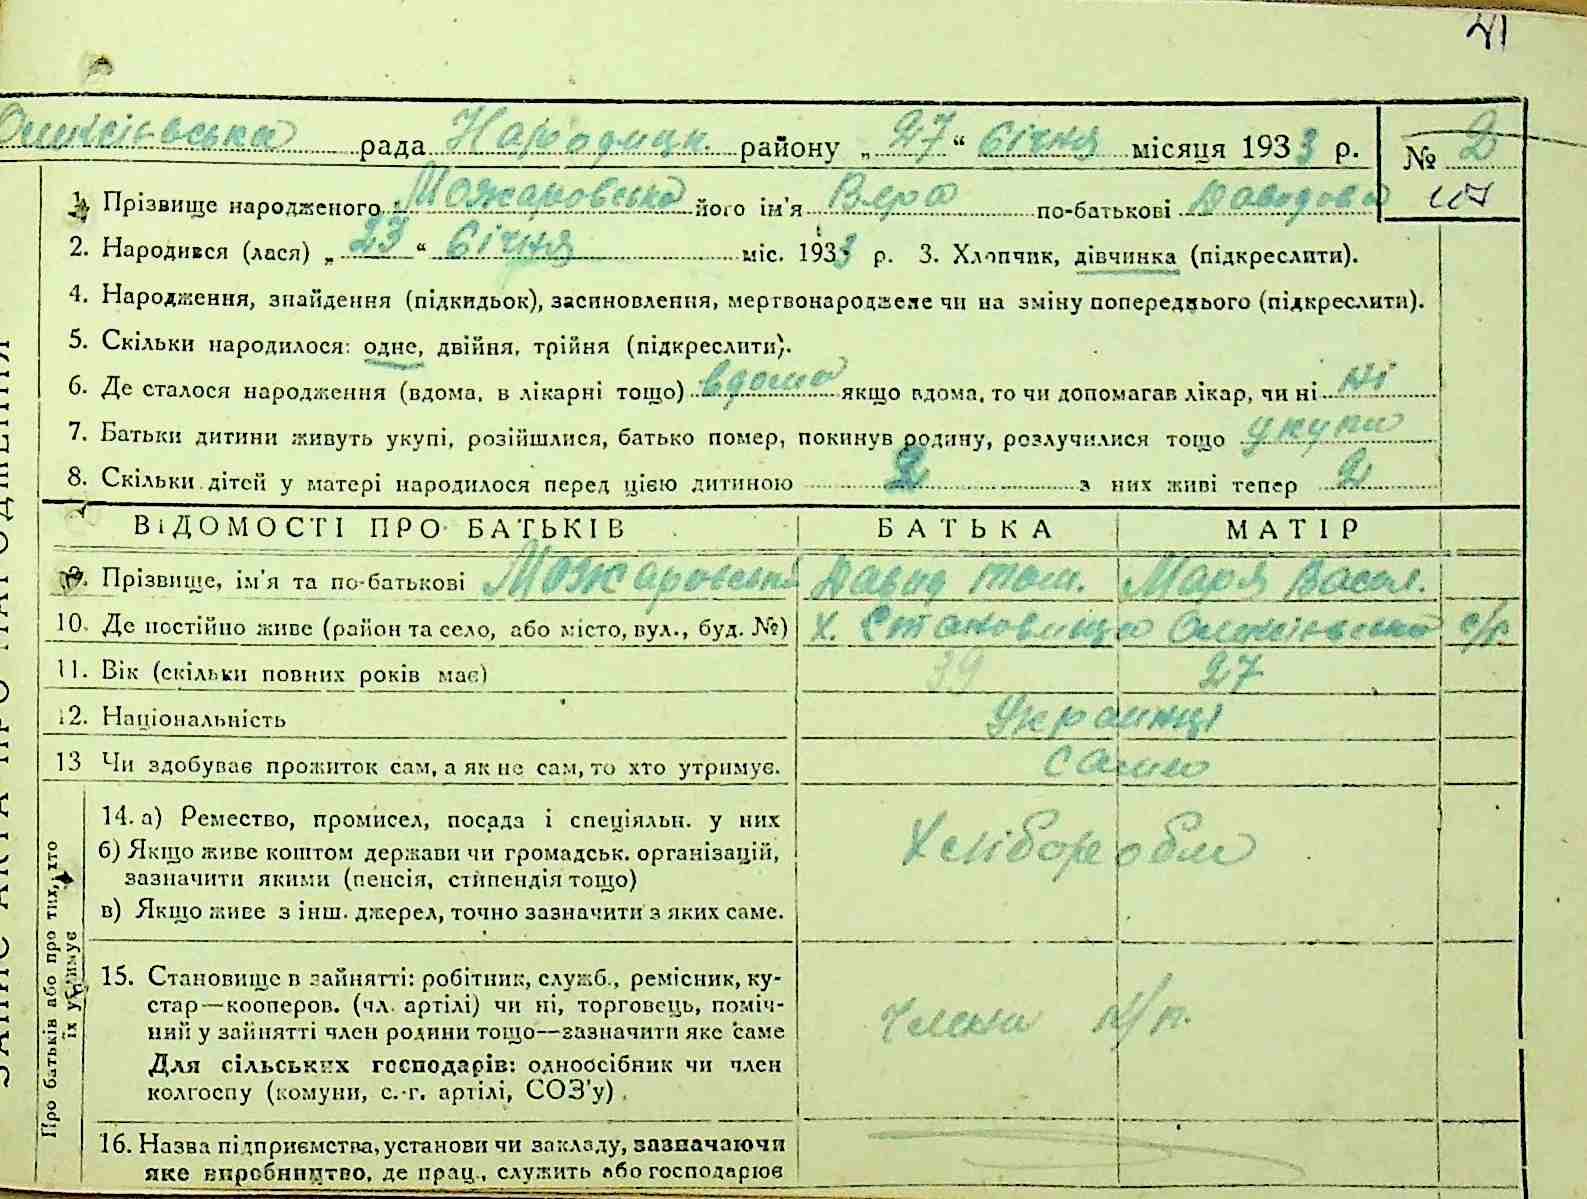 41
рада Народицк. району „27“ Січня місяця 1933 р. № 2
1. Прізвище народженого Можаровська його ім'я Вера по-батькові Давидова 117
2. Народився (лася) „23“ Січня міс. 1933 р. 3. Хлопчик, дівчинка (підкреслити).
4. Народження, знайдення (підкидьок), засиновлення, мертвонароджене чи на зміну попереднього (підкреслити).
5. Скільки народилося: одне, двійня, трійня (підкреслити).
6. Де сталося народження (вдома, в лікарні тощо) вдома якщо вдома, то чи допомагав лікар, чи ні ні
7. Батьки дитини живуть укупі, розійшлися, батько помер, покинув родину, розлучилися тощо укупи
8. Скільки дітей у матері народилося перед цією дитиною 2 з них живі тепер 2
ВІДОМОСТІ ПРО БАТЬКІВ БАТЬКА МАТІР
9. Прізвище, ім'я та по-батькові Можаровськи Давид Том. Марія Васил.
10. Де постійно живе (район та село, або місто, вул., буд. №) Х. Становище с/р
11. Вік (скільки повних років має) 39 27
12. Національність Украинці
13 Чи здобуває прожиток сам, а як не сам, то хто утримує. Само
Про батьків або про тих, хто їх утримує
14. а) Ремество, промисел, посада і спеціяльн. у них Хлібороби
б) Якщо живе коштом держави чи громадськ. організацій,
зазначити якими (пенсія, стипендія тощо)
в) Якщо живе з інш. джерел, точно зазначити з яких саме.
15. Становище в зайнятті: робітник, служб., ремісник, ку-
стар—кооперов. (чл. артілі) чи ні, торговець, поміч-
ний у зайнятті член родини тощо—зазначити яке саме Члени к/г.
Для сільських господарів: одноосібник чи член
колгоспу (комуни, с.-г. артілі, СОЗ'у)
16. Назва підприємства, установи чи закладу, зазначаючи
яке виробництво, де прац., служить або господарює